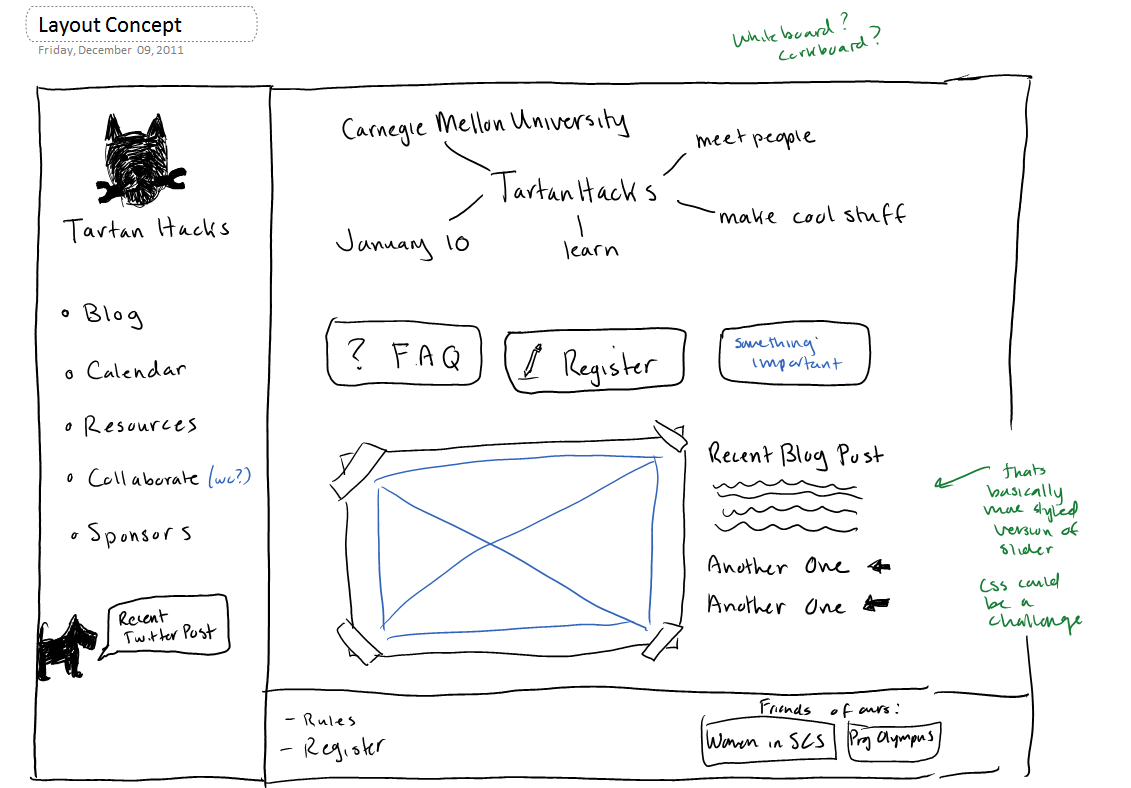 Layout Concept
Friday, December 09, 2011
Whiteboard?
Corkboard?
Tartan Hacks
Blog
Calendar
Resources
Collaborate (wc?)
Sponsors
Recent
Twitter Post
Carnegie Mellon University
meet people
TartanHacks
make cool stuff
January 10
learn
? F.A.Q
Register
Something
important
Recent Blog Post
Another One
Another One
thats
basically
more styled
version of
slider
CSS could
be a
challenge
- Rules
- Register
Friends of ours:
Women in SCS
Proj Olympus